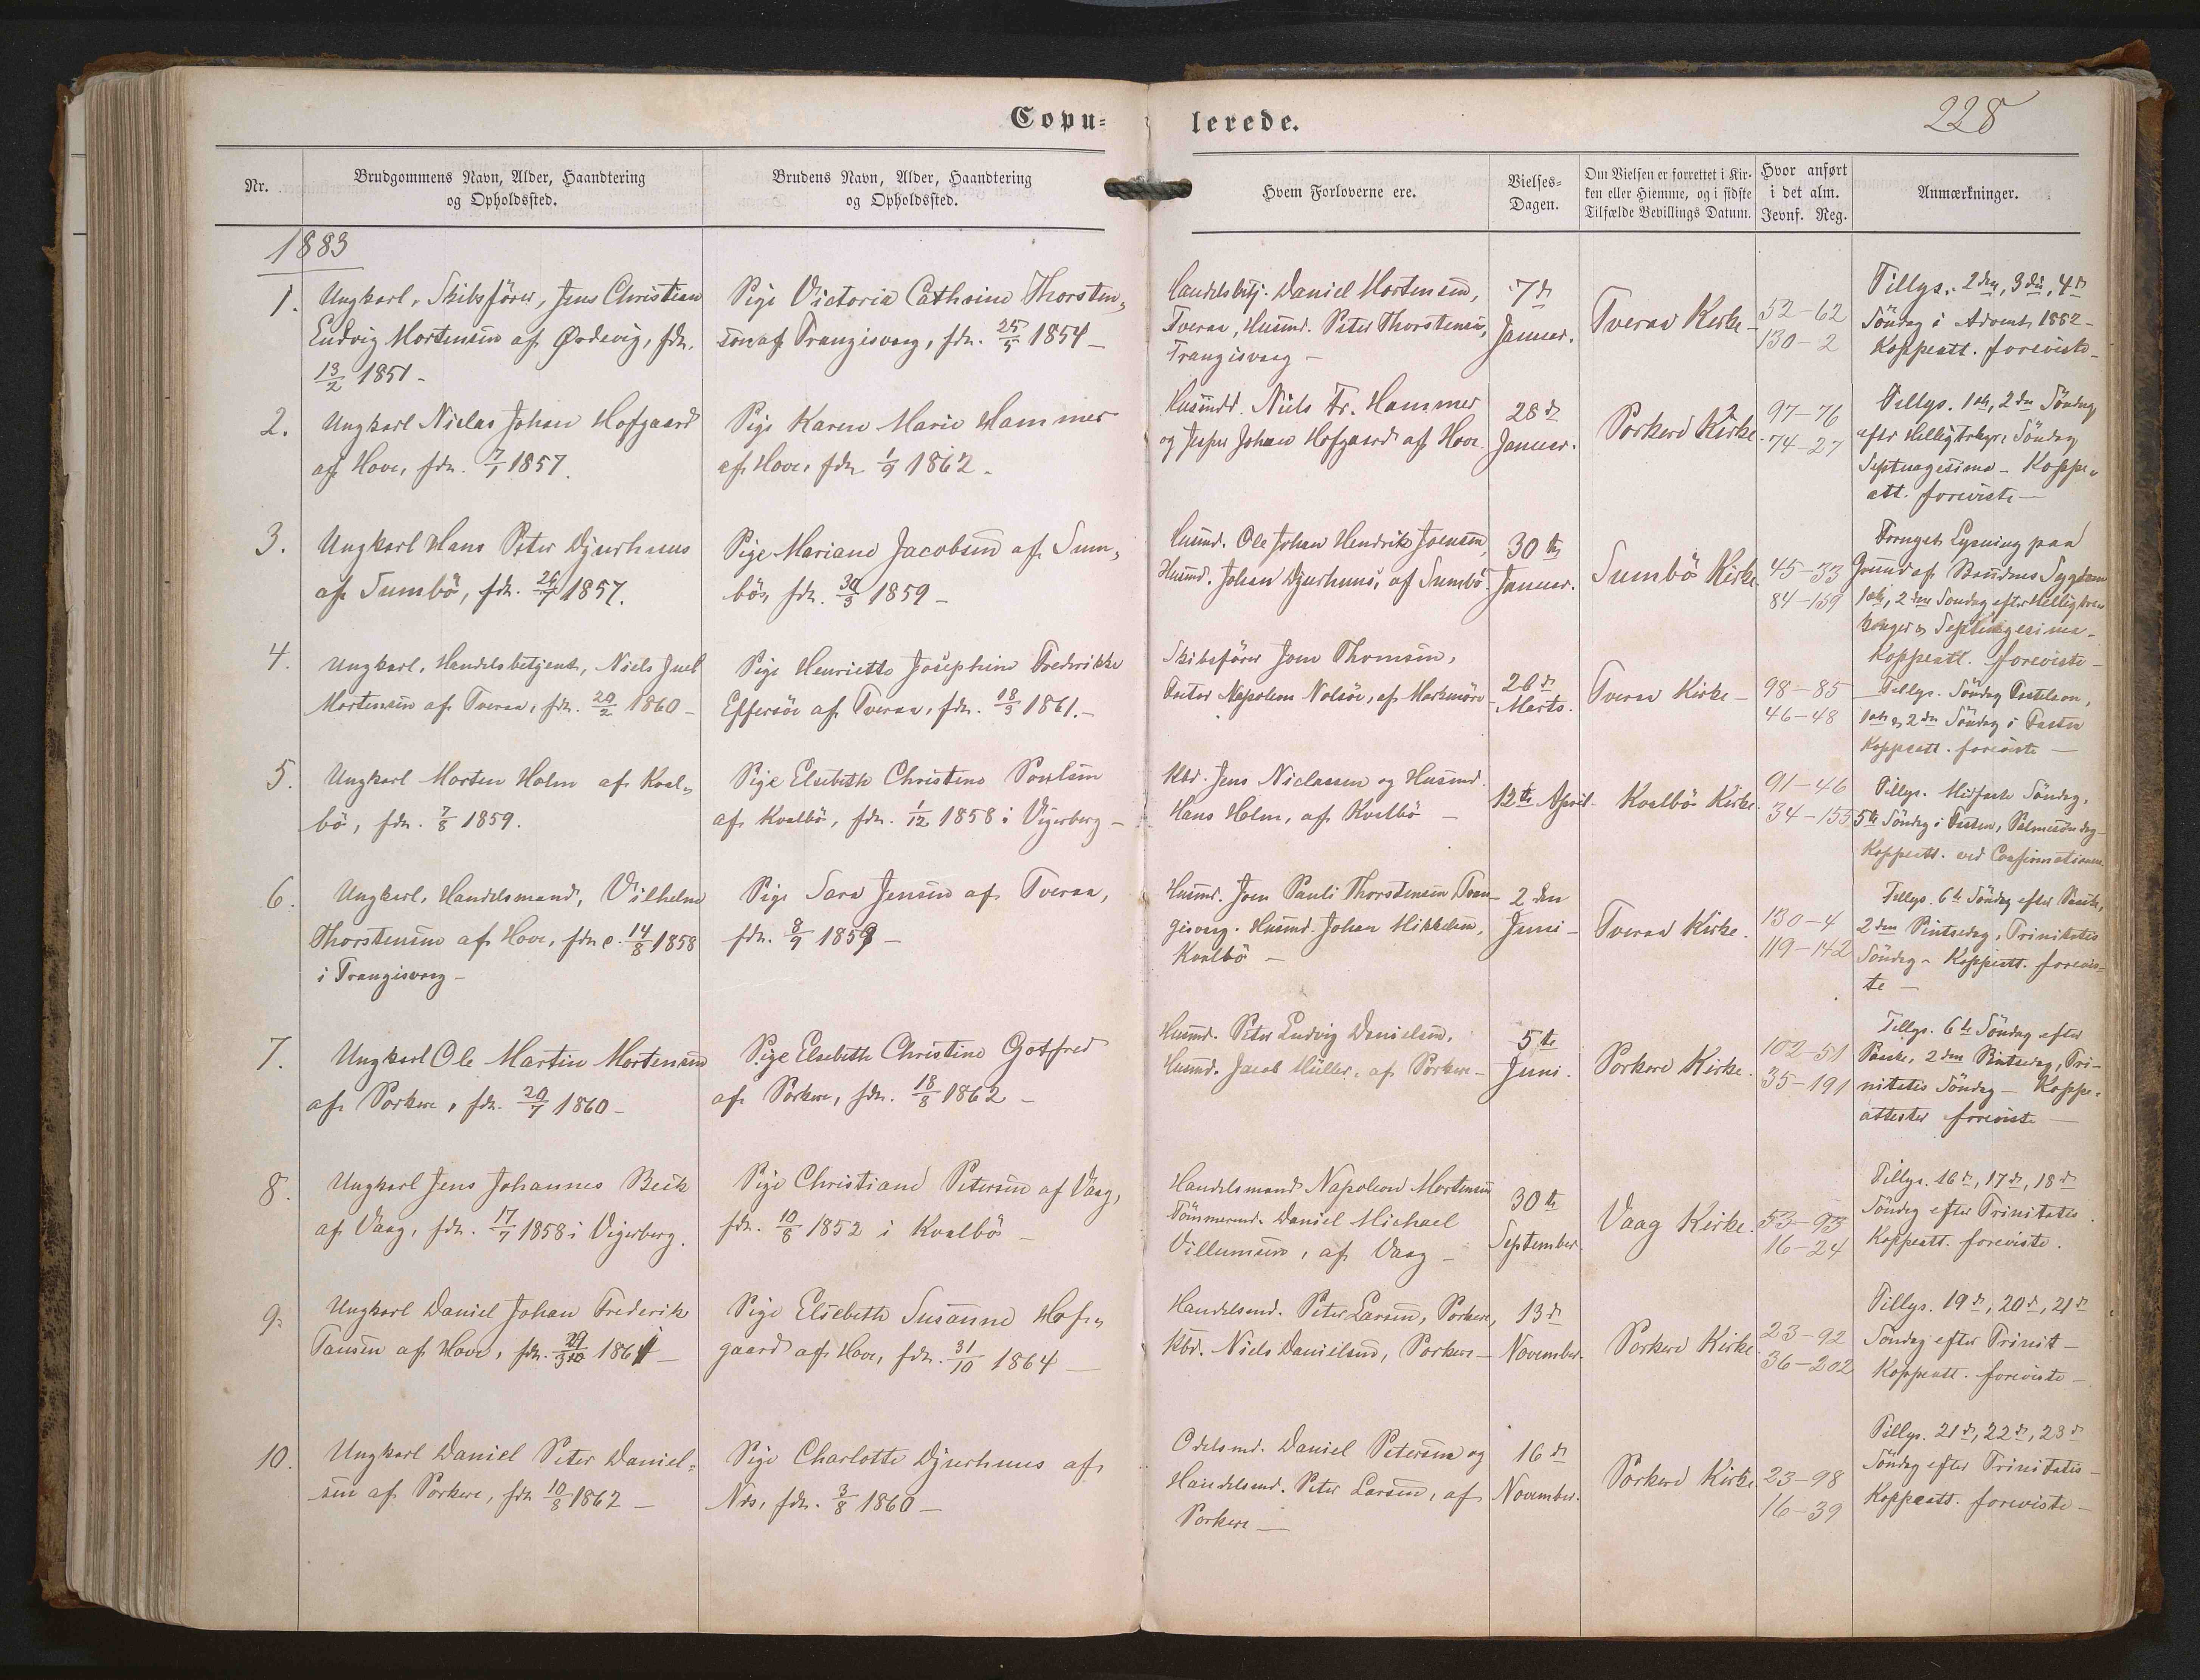 Copu=
lerede.
228
Nr.
Brudgommens Navn, Alder, Haandtering
og Opholdssted.
Brudens Navn, Alder, Haandtering
og Opholdssted.
Hvem Forloverne ere.
Vielses=
Dagen.
Om Vielsen er forrettet i Kir-
ken eller Hjemme, og i sidste
Tilfælde Bevillings Datum.
Hvor anført
i det alm.
Jevnf. Reg.
Anmærkninger.
1883
1.
Ungkarl, Skibsfører, Jens Christian
Ludvig Mortensen af Ørdevig, fdt.
13/2 1851 -
Pige Victoria Cathrine Thorsten„
sen af Trangisvaag, fdt. 25/5 1854 -
Handelsbetj. Daniel Mortensen,
Tveraa, Husmd. Peter Thorstensen,
Trangisvaag -
7d
Januar.
Tveraa Kirke -
52-62
130-2
Tillys. 2den, 3die, 4d
Söndag i Advent 1882 -
Koppeatt. foreviste -
2.
Ungkarl Niclas Johan Hofgaard
af Hove, fdt. 7/1 1857.
Pige Karen Marie Hammer
af Hove, fdt. 1/9 1862 -
Husmd. Niels Fr. Hammer
og Jesper Johan Hofgaard af Hove.
28d
Januar.
Porkere Kirke.
97-76
74-27
Tillys. 1ste, 2den Söndag
efter Helligtrekgr. Söndag
Septuagesima - Koppe„
att. foreviste -
3.
Ungkarl Hans Peter Djurhuus
af Sumbö, fdt. 26/7 1857.
Pige Mariane Jacobsen af Sum„
bö, fdt. 30/3 1859 -
Husmd. Ole Johan Hendrik Joensen,
Husmd. Johan Djurhuus, af Sumbö.
30te
Januar.
Sumbö Kirke
45-33
84-159
Fornyet Lysning paa
Grund af Brudens Sygdom
1ste, 2den Söndag efter Hellig tre
konger & Septuagesima -
Koppeatt. foreviste -
4.
Ungkarl, Handelsbetjent, Niels Juel
Mortensen af Tveraa, fdt. 20/2 1860 -
Pige Henriette Josephine Frederikke
Effersöe af Tveraa, fdt. 18/3 1861. -
Skibsfører Joen Thomsen,
Napoleon Nolsöe, af
26d
Marts.
Tveraa Kirke -
98-85
46-48
Tillys. Söndag Fastelavn,
1ste & 2den Söndag i Fasten
Koppeatt. foreviste -
5.
Ungkarl Morten Holm af Kval„
bö, fdt. 7/8 1859.
Pige Elsebeth Christine Poulsen
af Kvalbö, fdt. 1/12 1858 i Vigerberg -
Kbd. Jens Niclassen og Husmd.
Hans Holm, af Kvalbö -
12te April.
Kvalbö Kirke.
91-46
34-155
Tillys. Midfaste Söndag,
5te Söndag i Fasten, Palmesöndag -
Koppeatt. ved Confirmationen.
6.
Ungkarl, Handelsmand, Vilhelm
Thorstensen af Hove, fdt. 14/8 1858
i Trangisvaag -
Pige Sara Jensen af Tveraa,
fdt. 8/9 1859 -
Husmd. Joen Pauli Thorstensen Tran-
gisvaag. Husmd. Johan Mikkelsen,
Kvalbö -
2den
Juni -
Tveraa Kirke.
130-4
119-142
Tillys. 6te Söndag efter Paaske,
2den Pintsedag, Trinitatis
Söndag - Koppeatt. forevis=
te -
7.
Ungkarl Ole Martin Mortensen
af Porkere, fdt. 20/7 1860 -
Pige Elsebeth Christine Gotfred
af Porkere, fdt. 18/8 1862 -
Husmd. Peter Ludvig Danielsen,
Husmd. Jacob Müller, af Porkere -
5te
Juni.
Porkere Kirke.
102-51
35-191
Tillys. 6te Söndag efter
Paaske, 2den Pintsedag, Tri-
nitatis Söndag - Koppe-
attester foreviste -
8.
Ungkarl Jens Johannes Beck
af Vaag, fdt. 17/7 1858 i Vigerberg.
Pige Christiane Petersen af Vaag,
fdt. 10/8 1852 i Kvalbö -
Handelsmand Napoleon Mortensen
Tömmermd. Daniel Michael
Villumsen, af Vaag -
30te
September.
Vaag Kirke.
53-93
16-24
Tillys. 16d, 17d, 18d
Söndag efter Trinitatis
Koppeatt. foreviste.
9.
Ungkarl Daniel Johan Frederik
Tausen af Hove, fdt. 29/10 1861 -
Pige Elsebeth Susanne Hof„
gaard af Hove, fdt. 31/10 1864 -
Handelsmd. Peter Larsen, Porkere,
Kbd. Niels Danielsen, Porkere -
13d
November.
Porkere Kirke.
23-92
36-202
Tillys. 19d, 20d, 21d
Söndag efter Trinit -
Koppeatt. foreviste -
10.
Ungkarl Daniel Peter Daniel=
sen af Porkere, fdt. 10/8 1862 -
Pige Charlotte Djurhuus af
Næs, fdt. 3/8 1860 -
Odelsmd. Daniel Petersen og
Handelsmd. Peter Larsen, af
Porkere -
16d
November.
Porkere Kirke.
23-98
16-39
Tillys. 21d, 22d, 23d
Söndag efter Trinitatis -
Koppeatt. foreviste -